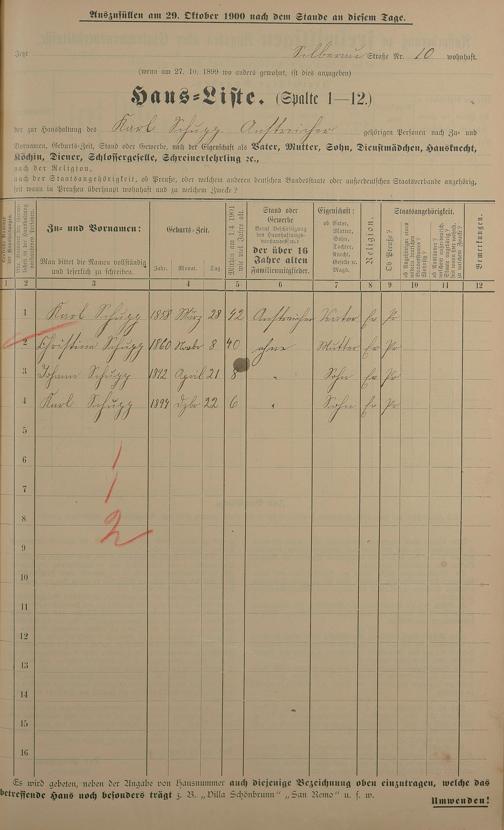 Auszufüllen am 29. Oktober 1900 nach dem Stande an diesem Tage.
Jetzt Selberau Straße Nr. 10 wohnhaft.
(wenn am 27. 10. 1899 wo anders gewohnt, ist dies anzugeben)
Haus-Liste. (Spalte 1—12.)
der zur Haushaltung des Karl Schupp Anstreicher gehörigen Personen nach Zu- und
Vornamen, Geburts-Zeit, Stand oder Gewerbe, nach der Eigenschaft als Vater, Mutter, Sohn, Dienstmädchen, Hausknecht,
Köchin, Diener, Schlossergeselle, Schreinerlehrling ꝛc.,
nach der Religion,
nach der Staatsangehörigkeit, ob Preuße, oder welchem anderen deutschen Bundesstaate oder außerdeutschen Staatsverbande angehörig,
seit wann in Preußen überhaupt wohnhaft und zu welchem Zwecke?
Zu- und Vornamen:
Man bittet die Namen vollständig
und leserlich zu schreiben.
Geburts-Zeit.
Jahr. Monat. Tag.
Mithin am 1/4 1901
wie viel Jahre alt.
Stand oder
Gewerbe
der über 16
Jahre alten
Familienmitglieder.
Eigenschaft:
ob Vater,
Mutter,
Sohn,
Tochter,
Knecht,
Geselle u.
Magd.
Religion.
Staatsangehörigkeit.
Ob Preuße?
Bemerkungen.
1 2 3 4 5 6 7 8 9 10 11 12
1 Karl Schupp 1858 März 28 42 Anstreicher Vater Ev Pr
2 Christina Schupp 1860 Novbr 8 40 ohne Mutter Ev Pr
3 Johann Schupp 1892 April 21 8 " Sohn Ev Pr
4 Karl Schupp 1894 Dzbr 22 6 " Sohn Ev Pr
5
6 1
7 1
8 2
9
10
11
12
13
14
15
16
Es wird gebeten, neben der Angabe von Hausnummer auch diejenige Bezeichnung oben einzutragen, welche das
betreffende Haus noch besonders trägt z. B. „Villa Schönbrunn" „San Remo" u. s. w.
Umwenden!